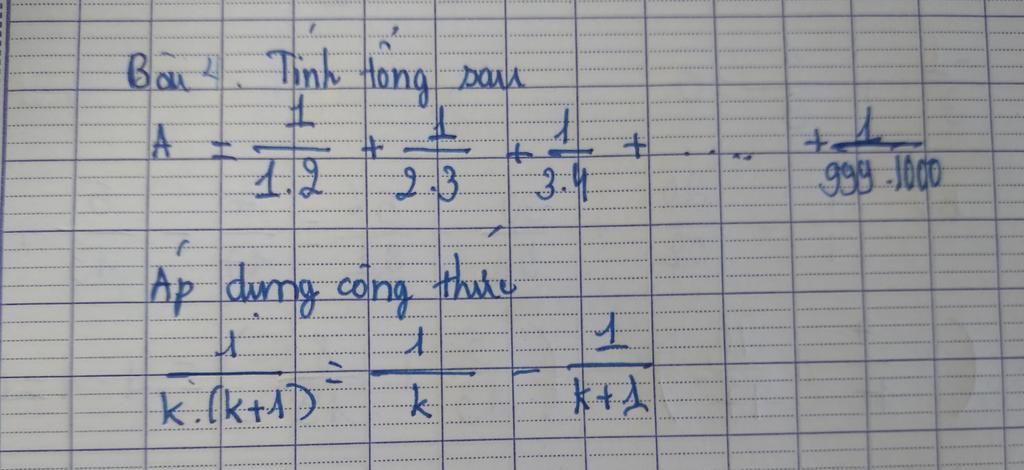 Bài 2. Tính tổng sau
A = 1/1.2 + 1/2.3 + 1/3.4 + ..... + 1/999.1000
Áp dụng công thức
1/k.(k+1) = 1/k - 1/k+1